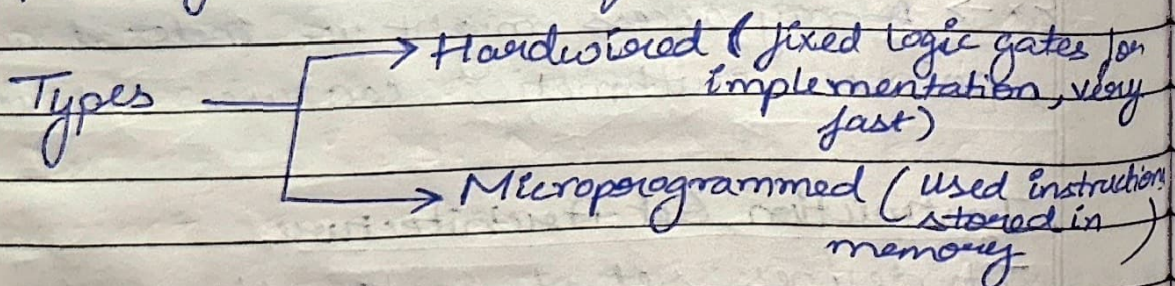 Types
Hardwired (fixed logic gates for
implementation, very
fast)
Microprogrammed (used instructions
stored in
memory)